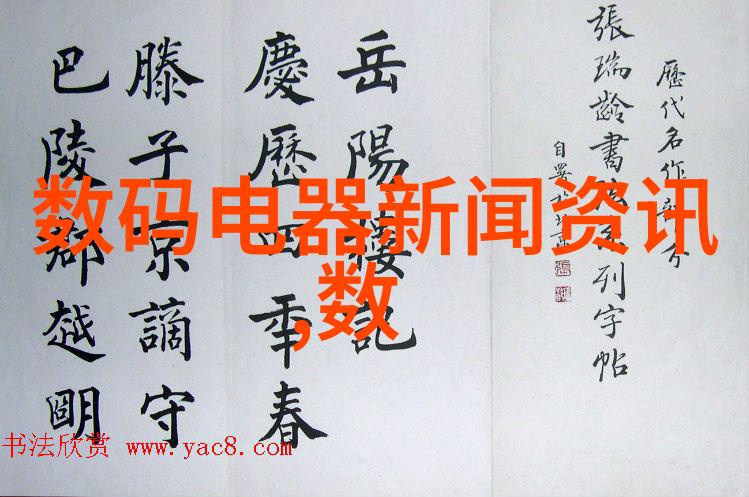 歷代名作部分
張瑞齡書法系列字帖
自署
岳陽樓記
慶歷四年春
滕子京謫守
巴陵郡越明
数码电器新闻资讯
,数
书法欣赏 www.yac8.com